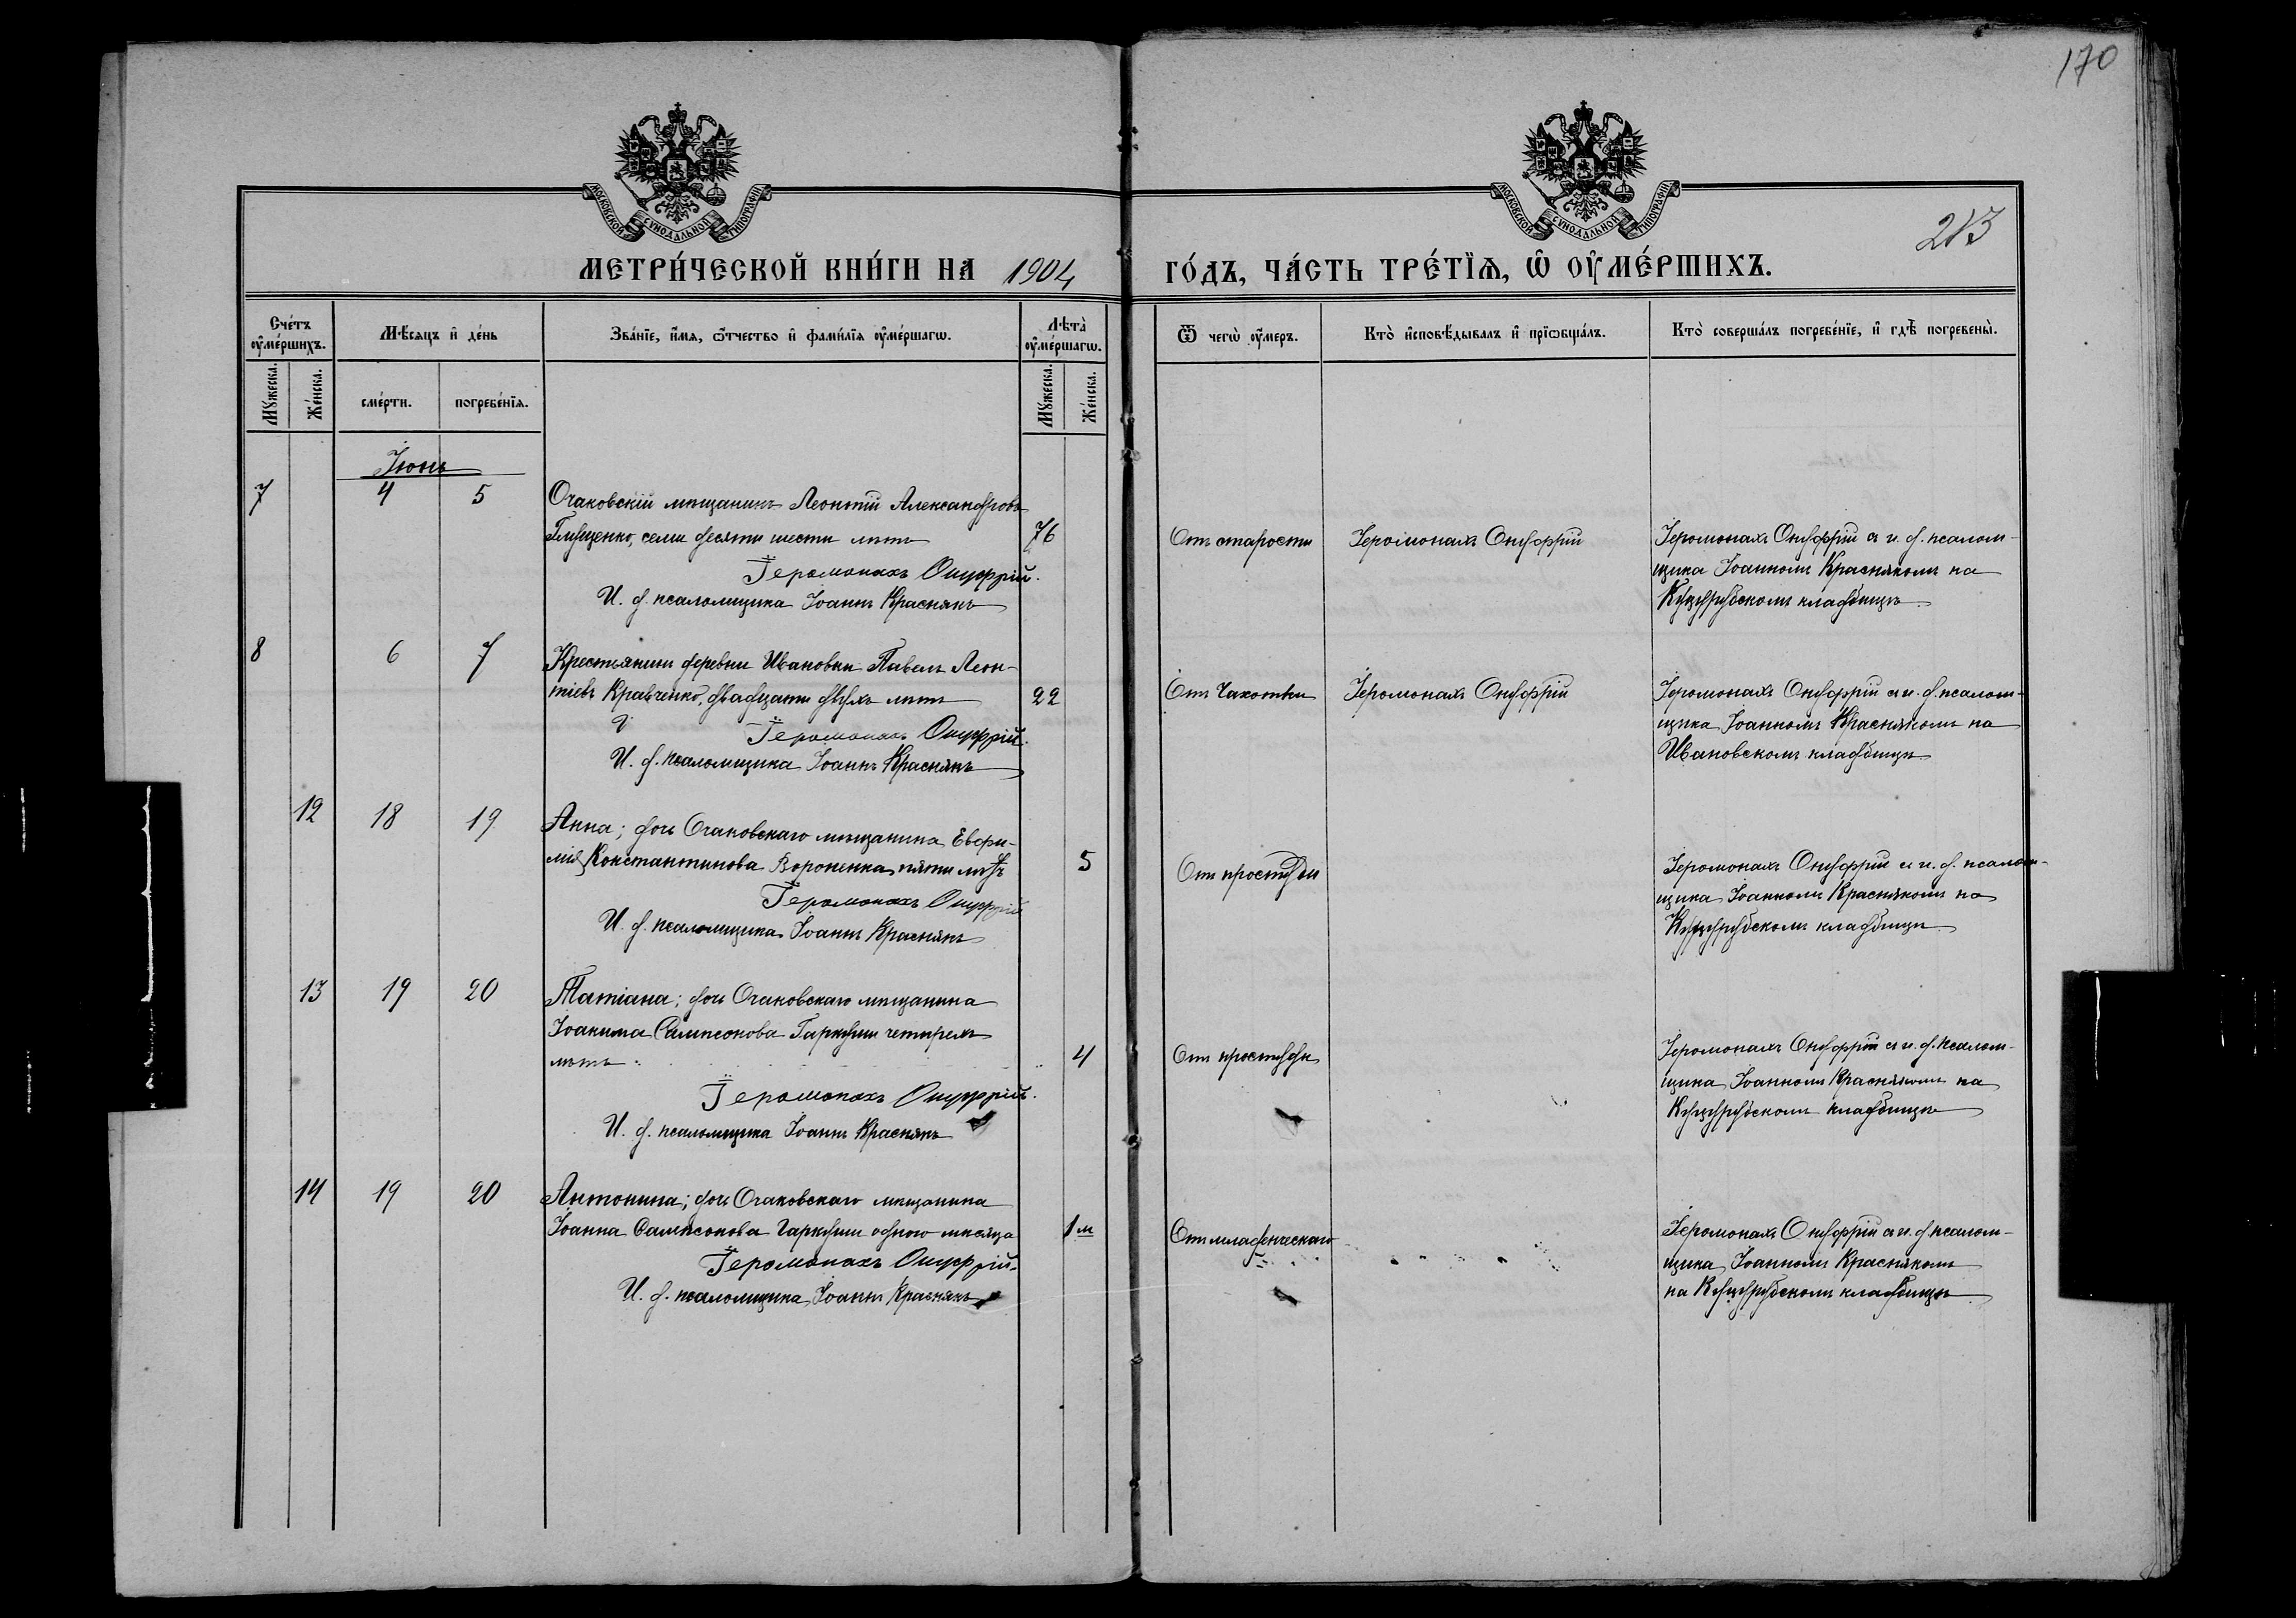 170
213
МЕТРИ́ЧЕСКОЙ КНИ́ГИ НА 1904 ГО́ДЪ, ЧА́СТЬ ТРЕ́ТЇѦ, Ѡ҆ ОУ҆МЕ́РШИХЪ.
МОСКОВСКОЙ СѴНОДАЛЬНОЙ ТИПОГРАФІИ
МОСКОВСКОЙ СѴНОДАЛЬНОЙ ТИПОГРАФІИ
Сче́тъ оу҆ме́ршихъ.
Мꙋ́жеска.
Же́нска.
Мѣ́сѧцъ и҆ де́нь
сме́рти.
погребе́нїѧ.
Зва́нїе, и҆́мѧ, ѻ҆́тчество и҆ фами́лїѧ оу҆ме́ршагѡ.
Лѣта̀ оу҆ме́ршагѡ.
Мꙋ́жеска.
Же́нска.
Ѿ чегѡ̀ оу҆́меръ.
Кто̀ и҆сповѣ́дывалъ и҆ прїѡбща́лъ.
Кто̀ соверша́лъ погребе́нїе, и҆ гдѣ̀ погребены̀.
Іюнь
7 4 5
Очаковскій мѣщанинъ Леонтій Александровъ
Глущенко, семи десяти шести лѣтъ 76
Іеромонахъ Онуфрій.
И. д. псаломщика Іоаннъ Краснякъ
Отъ старости
Іеромонахъ Онуфрій
Іеромонахъ Онуфрій съ и. д. псалом-
щика Іоанномъ Краснякомъ на
Куцурубскомъ кладбищѣ
8 6 7
Крестьянинъ деревни Ивановки Павелъ Леон-
тіевъ Кравченко, двадцати двухъ лѣтъ 22
Іеромонахъ Онуфрій.
И. д. псаломщика Іоаннъ Краснякъ
Отъ Чахотки
Іеромонахъ Онуфрій
Іеромонахъ Онуфрій съ и. д. псалом-
щика Іоанномъ Краснякомъ на
Ивановскомъ кладбищѣ
12 18 19
Анна; дочь Очаковскаго мѣщанина Евфи-
мія Константинова Вороненка пяти лѣтъ 5
Іеромонахъ Онуфрій
И. д. псаломщика Іоаннъ Краснякъ
Отъ простуды
Іеромонахъ Онуфрій съ и. д. псалом-
щика Іоанномъ Краснякомъ на
Куцурубскомъ кладбищѣ
13 19 20
Татіана; дочь Очаковскаго мѣщанина
Іоанна Сампсонова Гаркуши четырехъ
лѣтъ 4
Іеромонахъ Онуфрій.
И. д. псаломщика Іоаннъ Краснякъ
Отъ простуды
Іеромонахъ Онуфрій съ и. д. псалом-
щика Іоанномъ Краснякомъ на
Куцурубскомъ кладбищѣ
14 19 20
Антонина; дочь Очаковскаго мѣщанина
Іоанна Сампсонова Гаркуши одного мѣсяца 1 м
Іеромонахъ Онуфрій.
И. д. псаломщика Іоаннъ Краснякъ
Отъ младенческаго
Іеромонахъ Онуфрій съ и. д. псалом-
щика Іоанномъ Краснякомъ
на Куцурубскомъ кладбищѣ